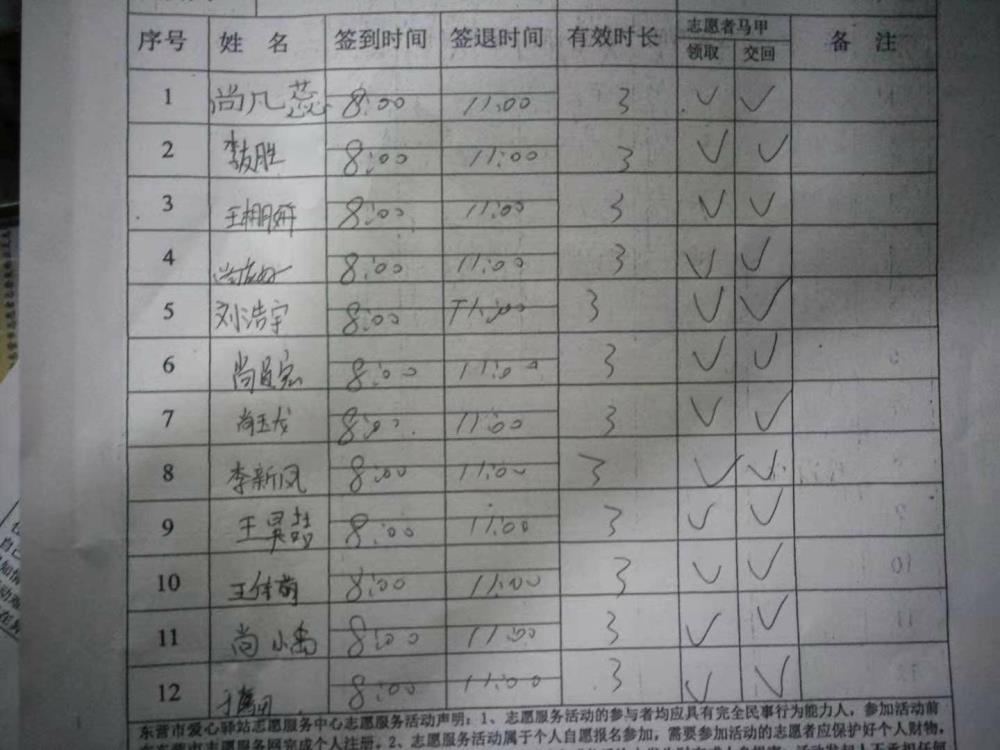 序号 姓名 签到时间 签退时间 有效时长 志愿者马甲 备注
领取 交回
1 尚凡蕊 8:00 11:00 3 ✓ ✓
2 李友胜 8:00 11:00 3 ✓ ✓
3 王栩妍 8:00 11:00 3 ✓ ✓
4 8:00 11:00 3 ✓ ✓
5 刘浩宇 8:00 11:00 3 ✓ ✓
6 8:00 11:00 3 ✓ ✓
7 尚玉龙 8:00 11:00 3 ✓ ✓
8 李新凤 8:00 11:00 3 ✓ ✓
9 王昊喆 8:00 11:00 3 ✓ ✓
10 王佳萌 8:00 11:00 3 ✓ ✓
11 尚小禹 8:00 11:00 3 ✓ ✓
12 8:00 11:00 3 ✓ ✓
东营市爱心驿站志愿服务中心志愿服务活动声明：1、志愿服务活动的参与者均应具有完全民事行为能力人，参加活动前
在东营市志愿服务网完成个人注册。2、志愿服务活动属于个人自愿报名参加，需要参加活动的志愿者应保护好个人财物，